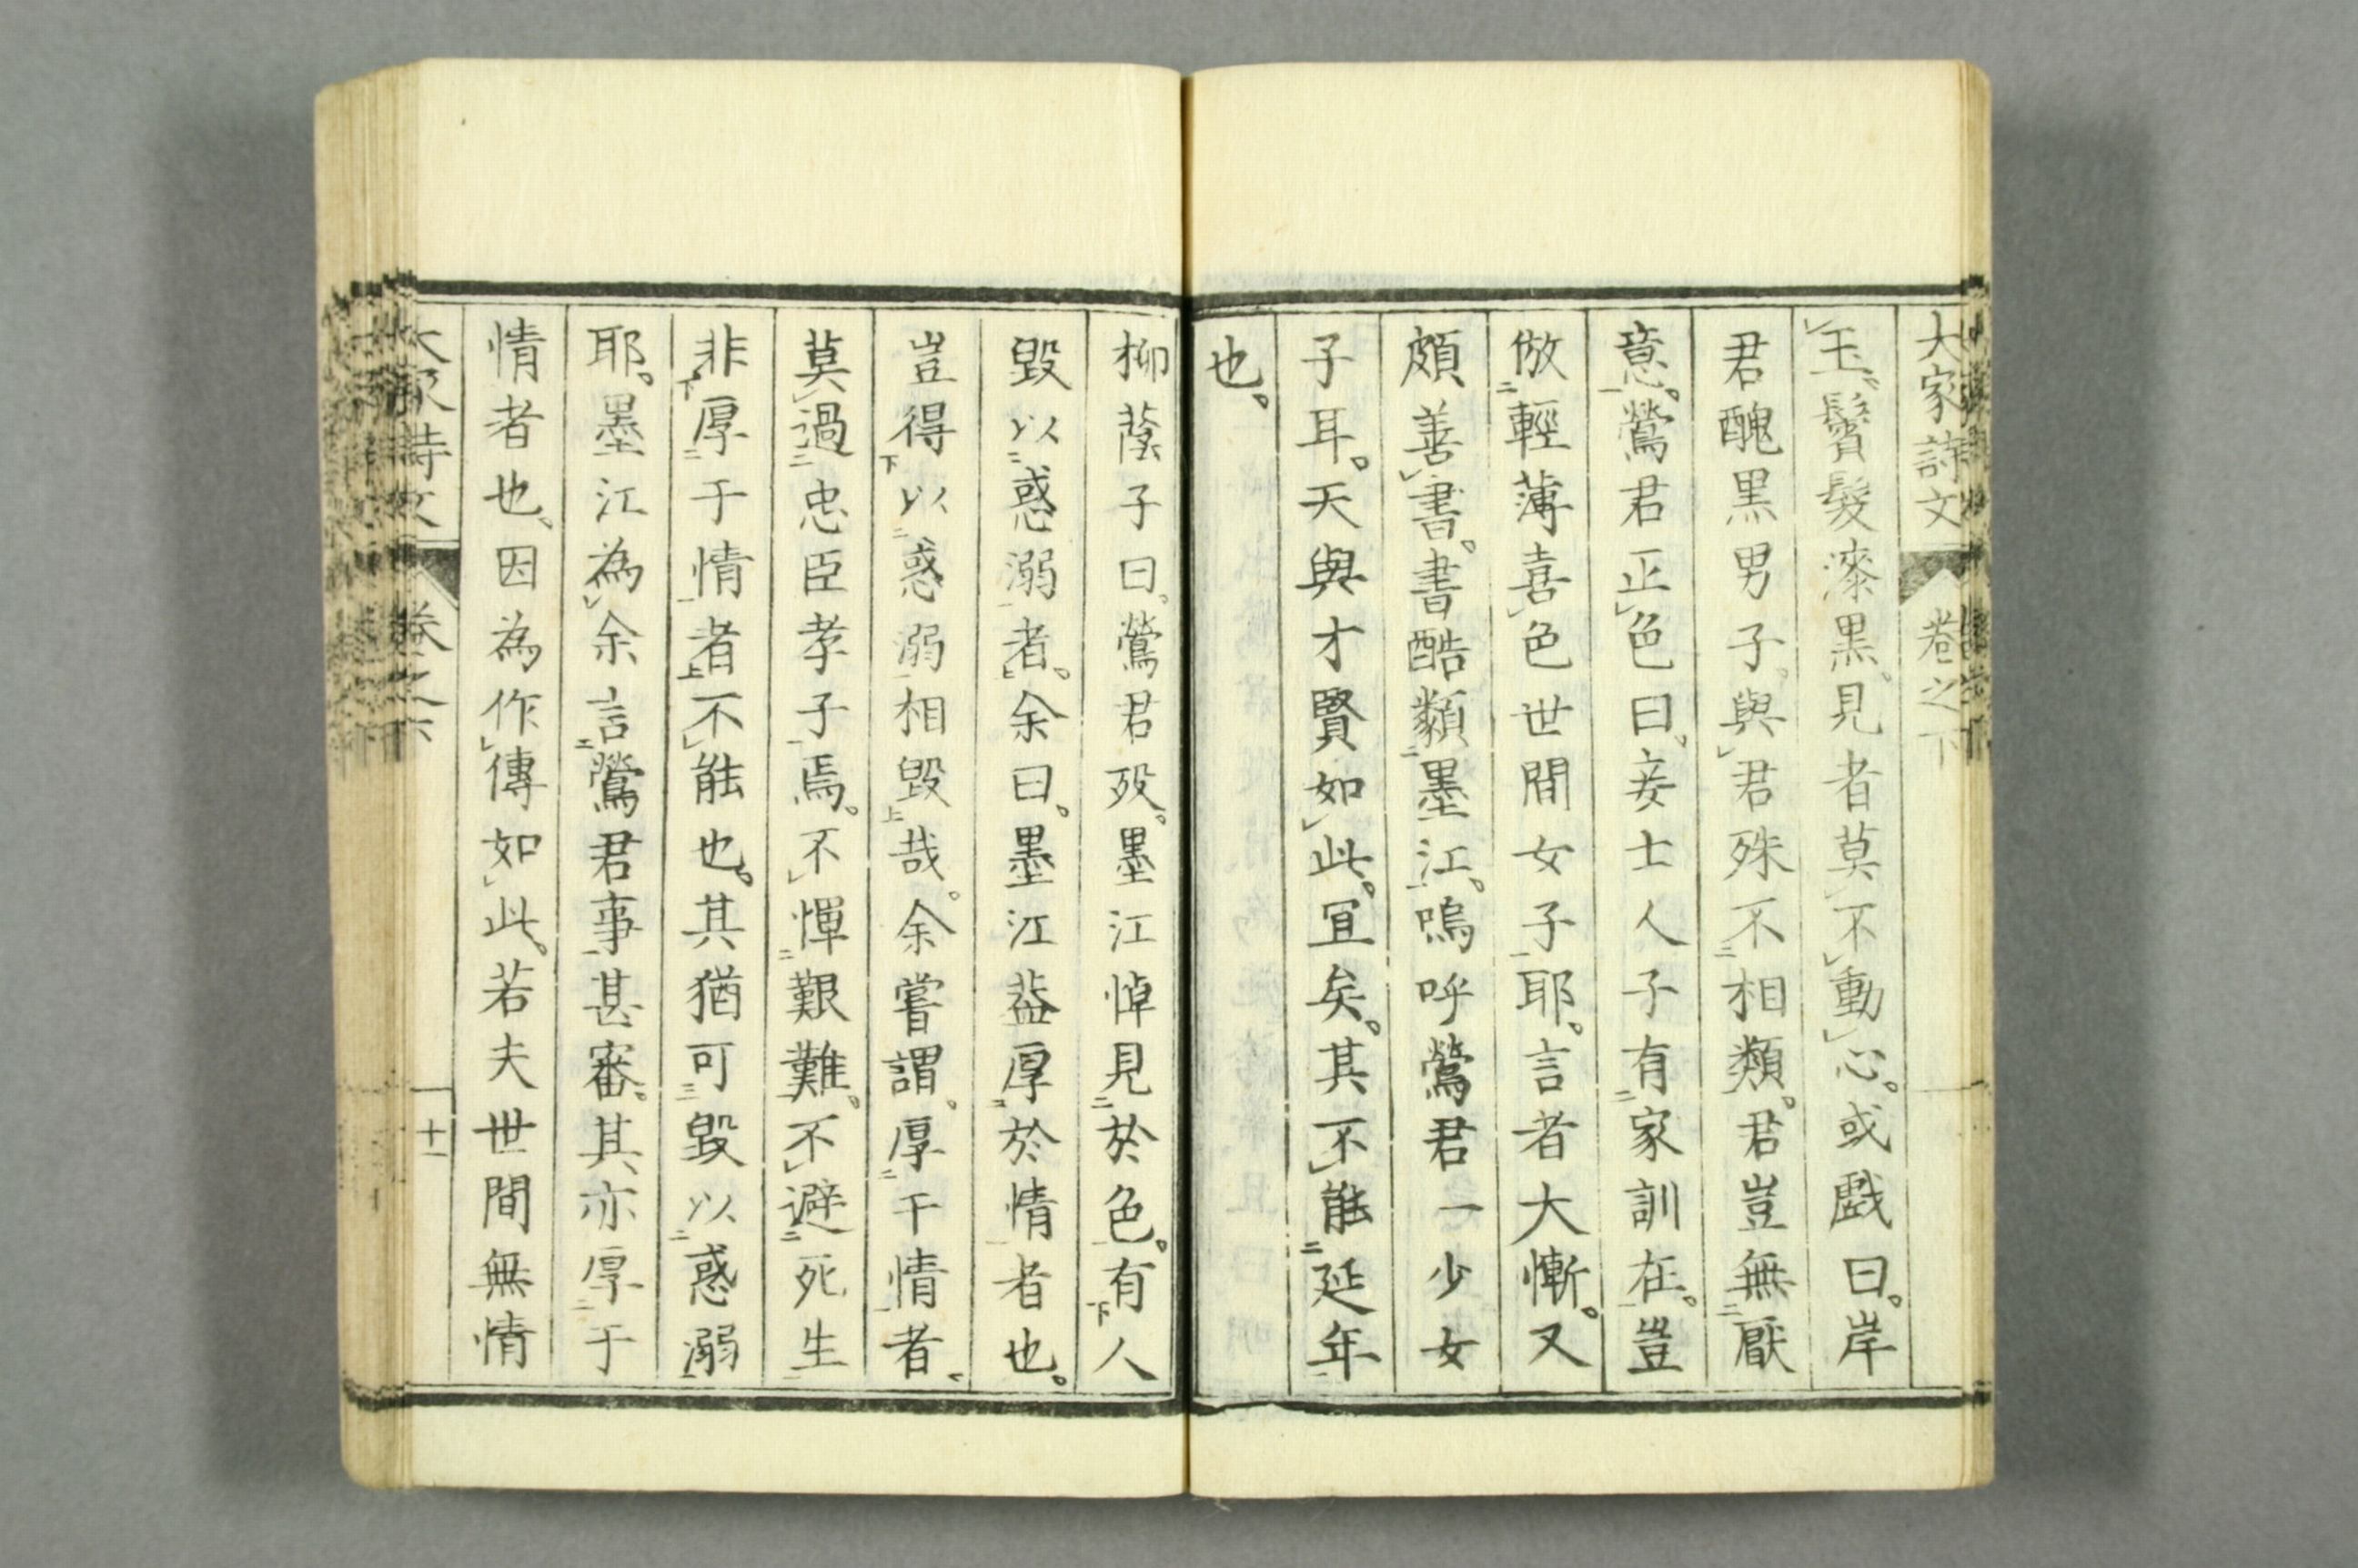 大家詩文 卷之下
玉、鬢髮漆黒、見者莫不動心。或戲曰。岸
君醜黒男子。與君殊不相類。君豈無厭
意。鶯君正色曰、妾士人子有家訓在。豈
倣輕薄喜色世間女子耶。言者大慚。又
頗善書。書酷類墨江。嗚呼鶯君一少女
子耳。天與才賢如此。宜矣。其不能延年
也。
柳蔭子曰。鶯君歿。墨江悼見於色。有人
毀以惑溺者。余曰。墨江益厚於情者也。
豈得以惑溺相毀哉。余嘗謂。厚于情者、
莫過忠臣孝子焉。不憚艱難。不避死生
非厚于情者不能也。其猶可毀以惑溺
耶。墨江為余言鶯君事甚審。其亦厚于
情者也、因為作傳如此。若夫世間無情
大家詩文 卷之下 十一